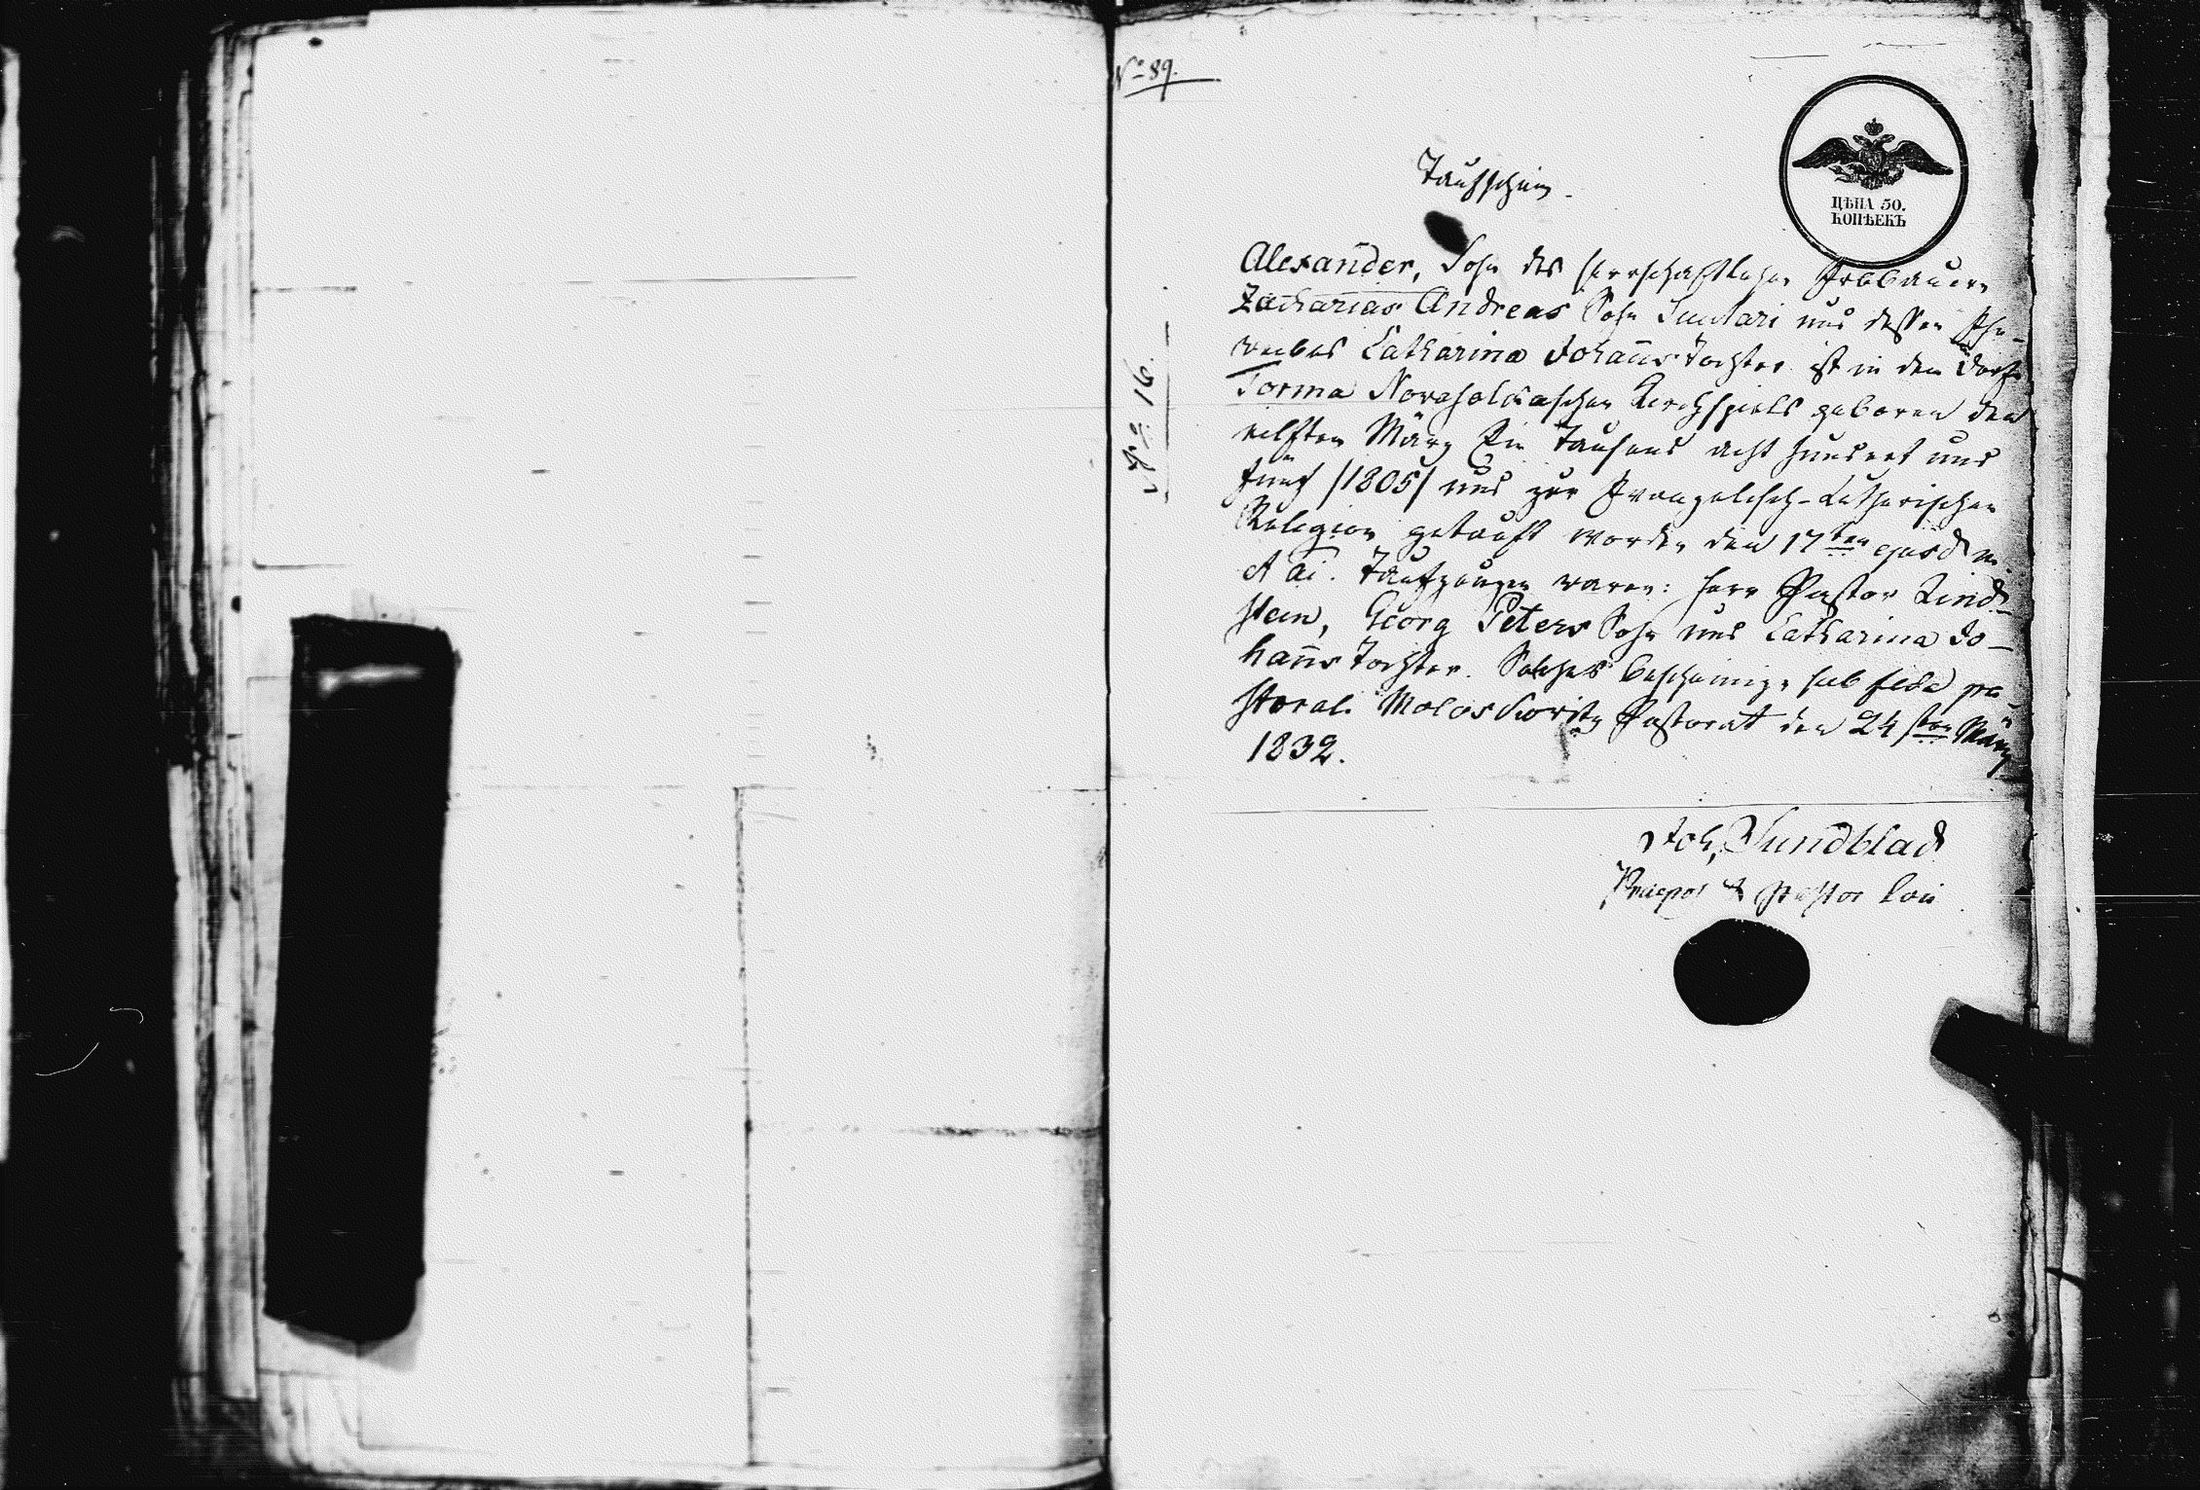 No 89.
Taufschein.
ЦѢНА 50.
КОПѢЕКЪ
Alexander, Sohn des herrschaftlichen Erbbauern
Zacharias Andreas Sohn und dessen Ehe-
weibes Catharina Johanns Tochter ist in dem Dorfe
Torma Kirchspiels geboren den
eilften März Ein Tausend acht hundert und
fünf /1805/ und zur Evangelisch-Lutherischen
Religion getauft worden den 17ten ejusdem
et ai. Taufzeugen waren: Herr Pastor Lind-
stein, Georg Peters Sohn und Catharina Jo-
hanns Tochter. Solches bescheinige sub fide pa-
storali. Moloskowitz Pastorat den 24sten März
1832.
No 16.
Joh. Sundblad
Praepos & Pastor loci